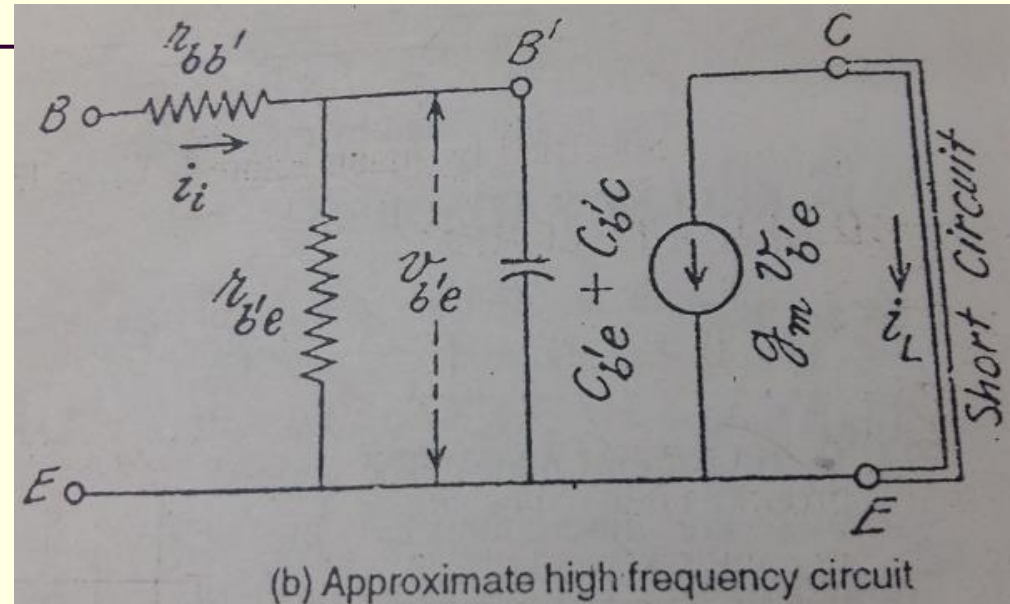 r_bb'
B'
C
B
i_i
r_b'e
v_b'e
C_b'e + C_b'c
g_m v_b'e
i_L
Short Circuit
E
E
(b) Approximate high frequency circuit